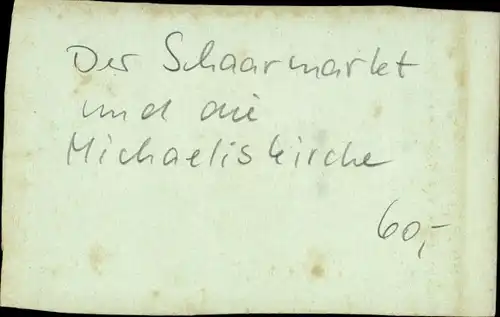 Der Schaarmarkt
und die
Michaeliskirche
60,-